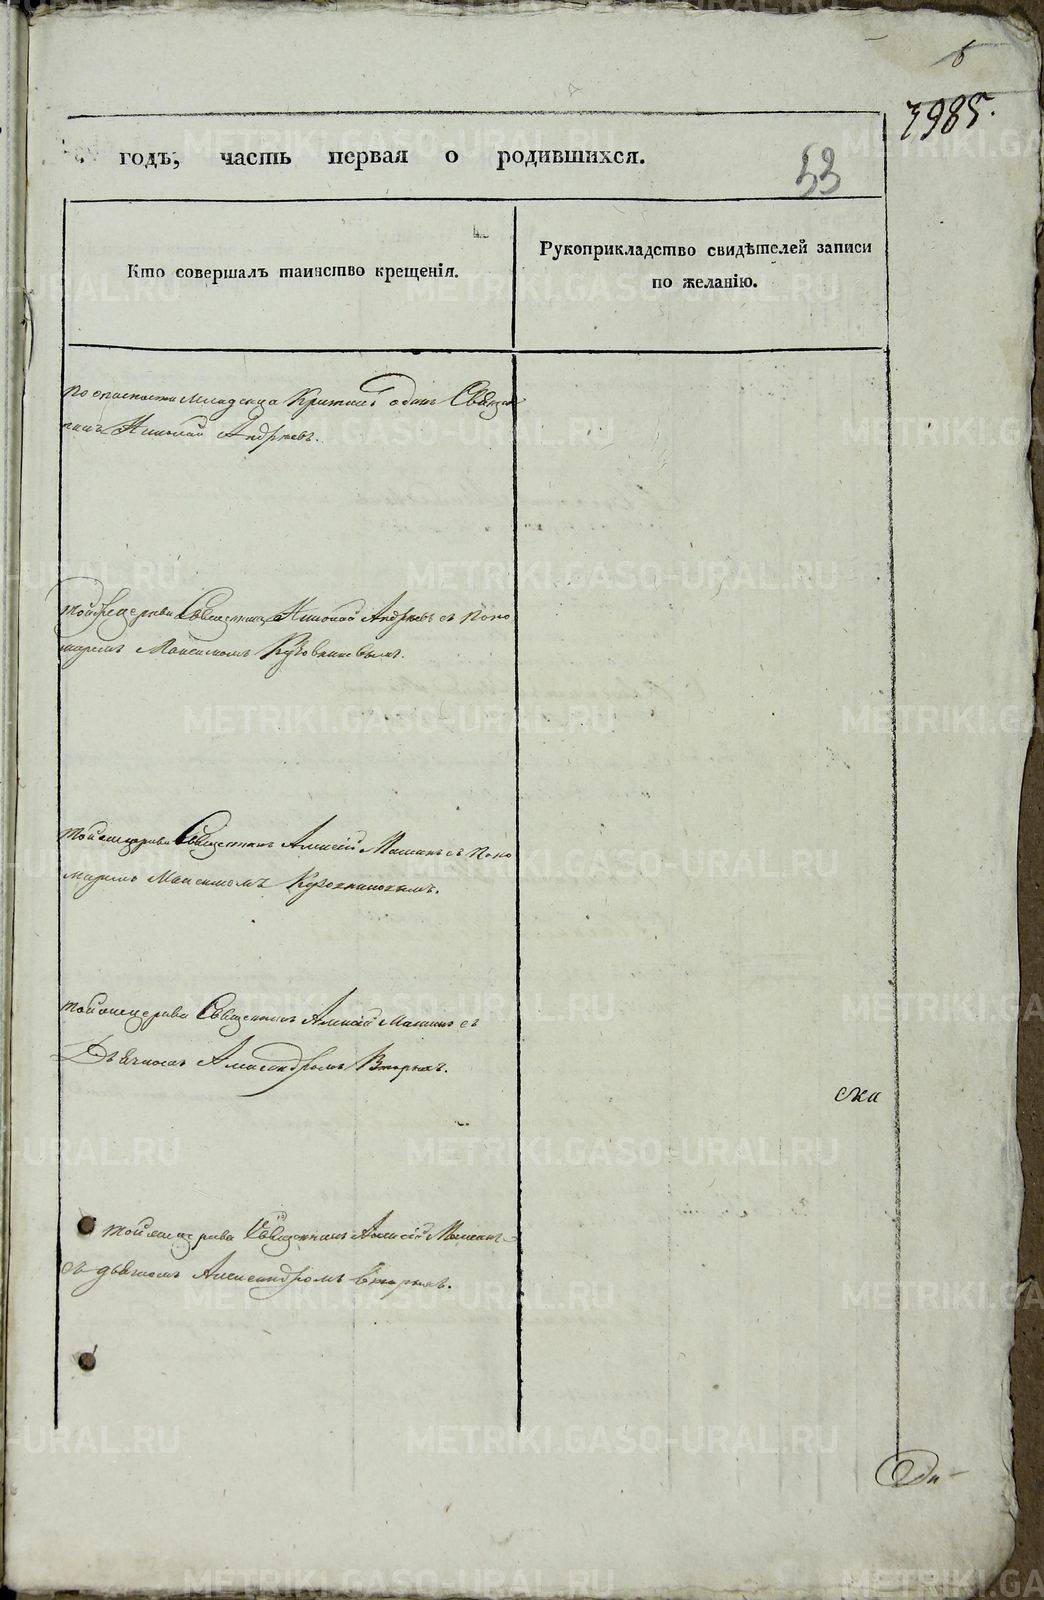 6
3985.
годъ, часть первая о родившихся.
53
Кто совершалъ таинство крещенія.
Рукоприкладство свидѣтелей записи
по желанію.
по опасности младенца крестилъ одинъ Священ
никъ Николай Андреевъ.
тойже церкви Священникъ Николай Андреевъ съ Поно
маремъ Максимомъ
тойже церкви Священникъ Алексій съ Поно
маремъ Максимомъ
тойже церкви Священникъ Алексій съ
Дьячкомъ Александромъ
тойже церкви Священникъ Алексій
съ дьячкомъ Александромъ
METRIKI.GASO-URAL.RU